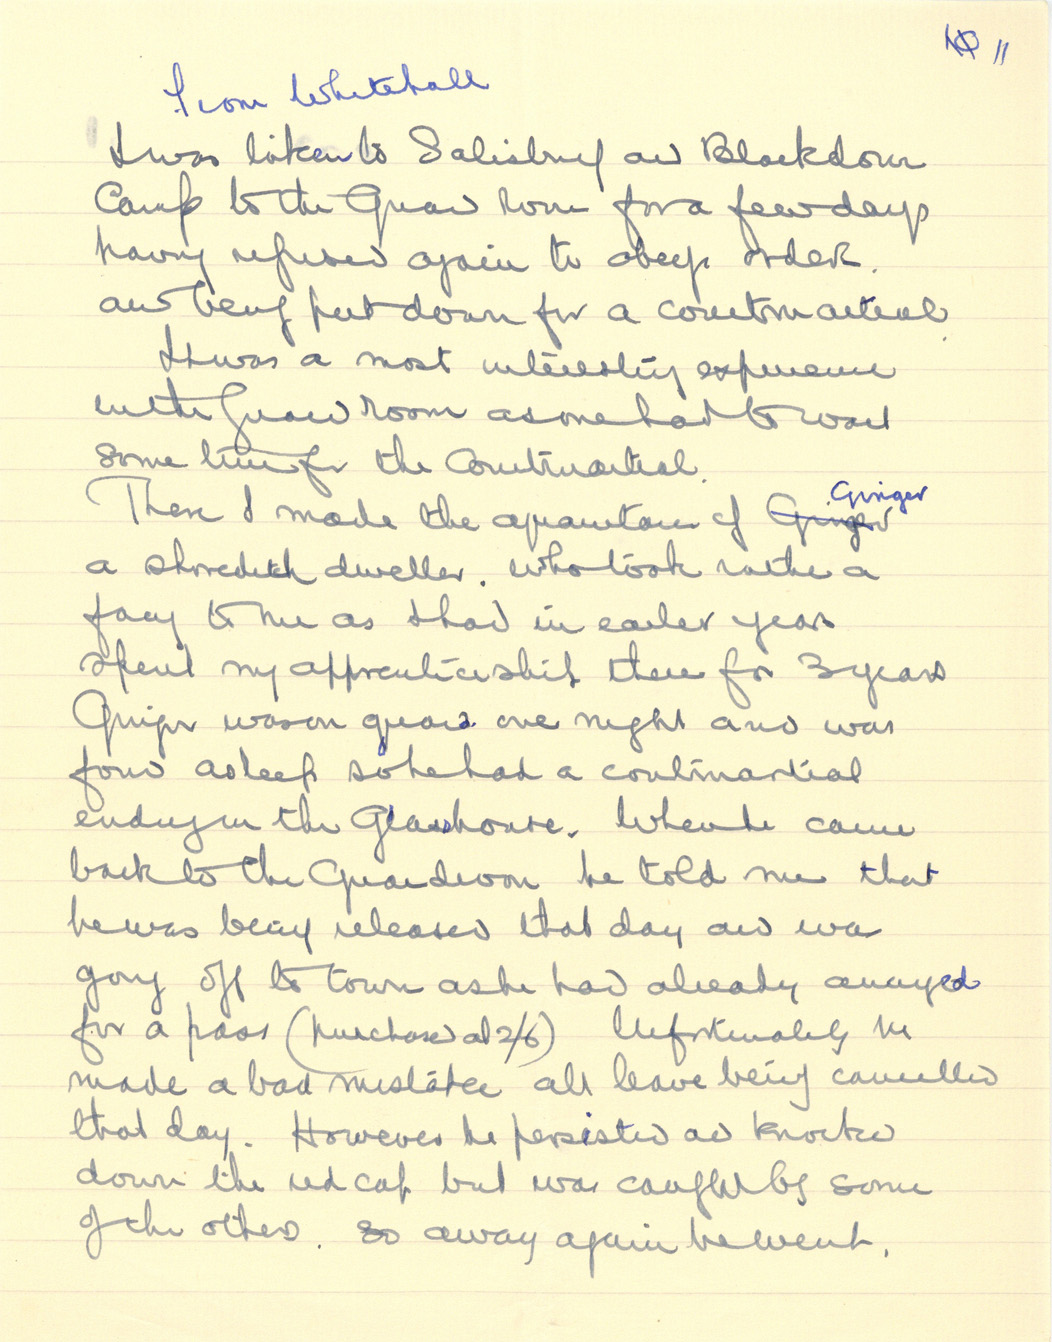 11
From Whitehall
I was taken to Salisbury and Blackdown
Camp to the Guard Room for a few days
having refused again to obey order.
and being put down for a courtmartial.
It was a most interesting experience
in the Guard Room as one had to wait
some time for the Courtmartial.
There I made the aquaintance of Ginger Ginger
a shoreditch dweller. who took rather a
fancy to me as I had in earlier years
spent my apprenticeship there for 3 years
Ginger was on guard one night and was
found asleep so he had a courtmartial
ending in the Glasshouse. When he came
back to the Guardroom he told me that
he was being released that day and was
going off to town as he had already arranged
for a pass (purchased at 2/6) Unfortunately he
made a bad mistake all leave being cancelled
that day. However he persisted and knocked
down the red cap but was caught by some
of the others. So away again he went.